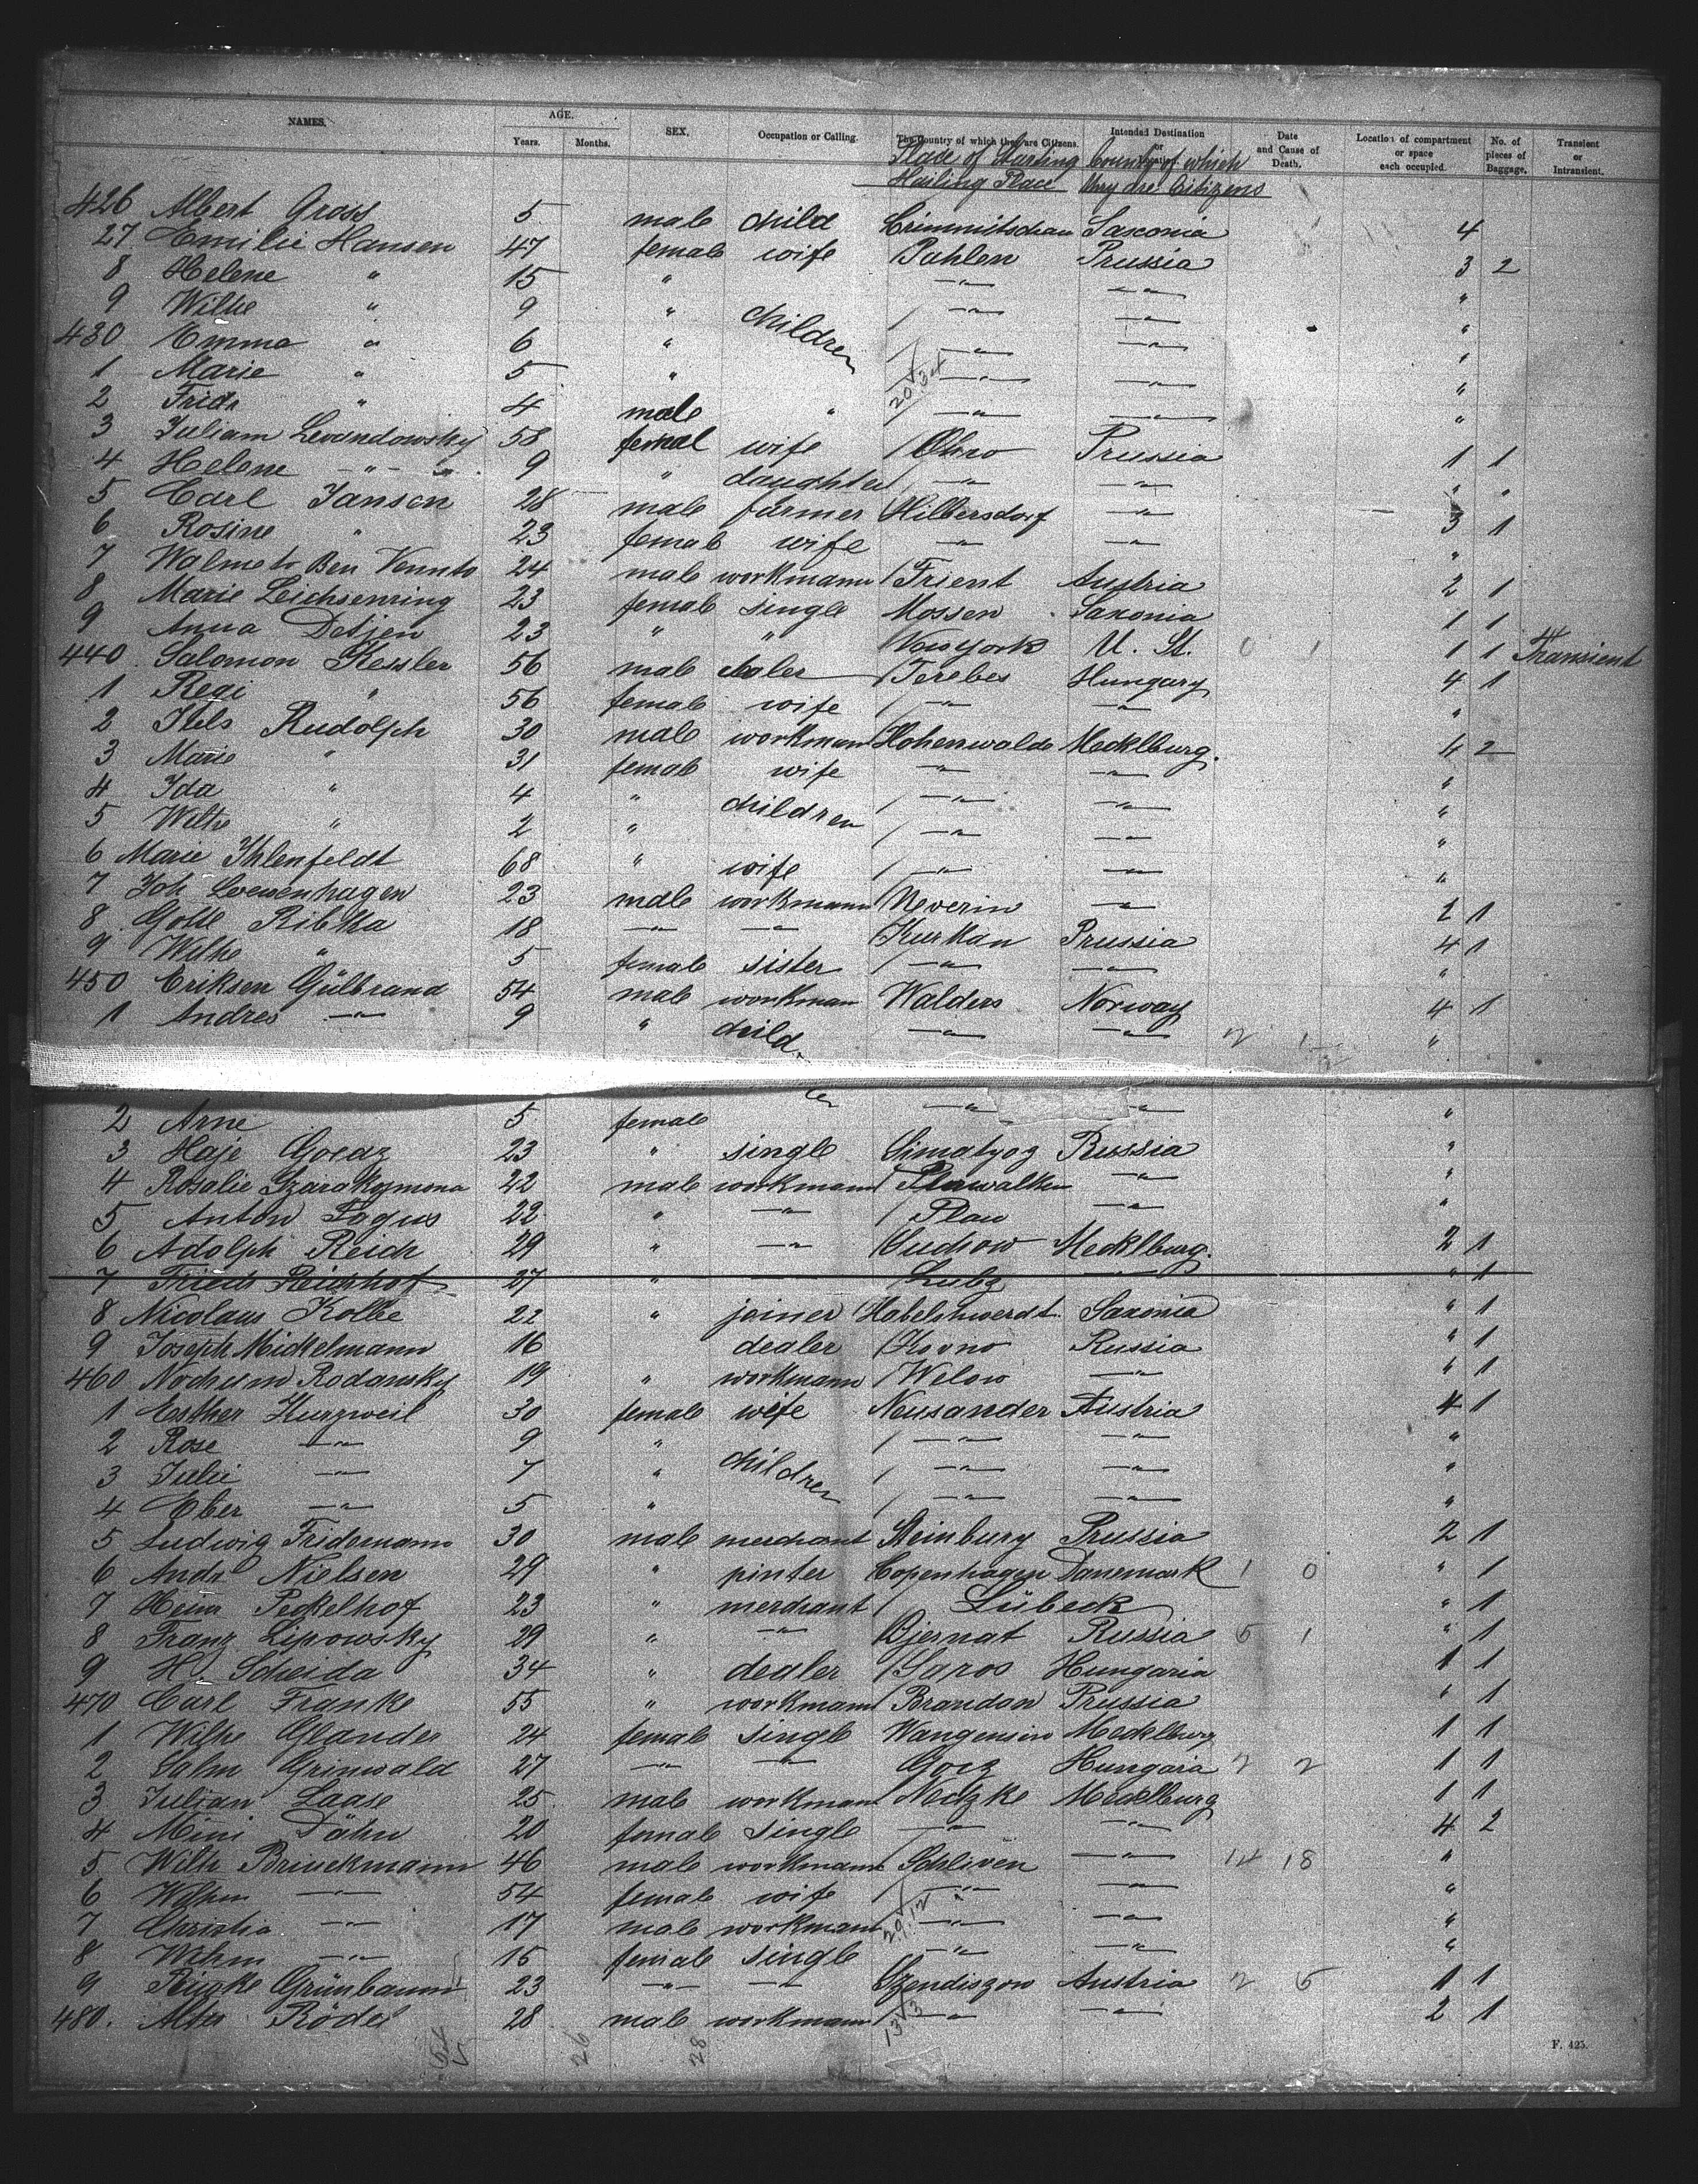 NAMES. AGE. Years. Months. SEX. Occupation or Calling. The Country of which they are Citizens. Intended Destination or Date and Cause of Death. Location of compartment or space each occupied. No. of pieces of Baggage. Transient or Intransient.
Place of Starting Country of which
Hailing Place they are Citizens
426 Albert Gross 5 male child Crimmitschau Saxonia 4
27 Emilie Hansen 47 female wife Pahlen Prussia 3 2
8 Helene " 15 " —"— —"— "
9 Wilhe " 9 " children —"— —"— "
430 Emma " 6 " —"— —"— "
1 Marie " 5 " —"— —"— "
2 Frida " 4 male " —"— —"— "
3 Juliam Levandowsky 58 femal wife Ohro Prussia 1 1
4 Helene —"— 9 " daughter —"— —"— " "
5 Carl Jansen 28 male farmer Hilbersdorf —"— 3 1
6 Rosine " 23 female wife —"— —"— "
7 Walmeto Ben Vennto 24 male workmann Trient Austria 2 1
8 Marie Leichsenring 23 female single Mossen Saxonia 1 1
9 Anna Detjen 23 " " New York U. St. 0 1 1 1 Transient
440 Salomon Kessler 56 male Terebes Hungary 4 1
1 Regi " 56 female wife —"— —"— "
2 Ihls Rudolph 30 male workmann Hohenwalde Mecklburg. 4 2
3 Marie " 31 female wife —"— —"— "
4 Ida " 4 " children —"— —"— "
5 Wilhe " 2 " —"— —"— "
6 Marie Ihlenfeldt 68 " wife —"— —"— "
7 Joh Loewenhagen 23 male workmann Neverin —"— 1 1
8 Golde Ribka 18 —"— —"— Kurkan Prussia 4 1
9 Wilhe " 5 female sister —"— —"— "
450 Eriksen Gülbrand 54 male workman Walders Norway 4 1
1 Andres —"— 9 " child. —"— —"— 2 1 "
2 Arne 5 female —"— —"— "
3 Haje Goeaz 23 " single Simatyog Russia "
4 Rosalie 22 male workmann —"— "
5 Anton Fagus 22 " —"— Plaw "
6 Adolph Reich 29 " —"— Suchow Mecklburg. 2 1
7 Frieds 27 " Lubz " 1
8 Nicolaus Kolbe 22 " joiner Habelshwerdt. Saxonia " 1
9 Joseph Mickelmann 16 dealer Kovno Russia " 1
460 Nochum Rodansky 19 " workmann Welow —"— " 1
1 Esther Kurzweil 30 female wife Neusander Austria 4 1
2 Rose —"— 9 " children —"— —"— "
3 Julie —"— 7 " —"— —"— "
4 Eber —"— 5 " —"— —"— "
5 Ludwig Fridemann 30 male merchant Steinburg Prussia 2 1
6 Andr Nielsen 29 " pinter Copenhagen Danemark 1 0 " 1
7 Heinr Peckelhof 23 " merchant Lübeck " 1
8 Franz Lipowsky 29 " —"— Bjernat Russia 5 1 " 1
9 H. Scheida 34 " dealer Saros Hungaria 1 1
470 Carl Franke 55 " workmann Brandon Prussia " 1
1 Wilhe Glander 24 female single Wangensin Mecklburg 1 1
2 Salm Grinwald 27 —"— —"— Goez Hungaria 2 2 1 1
3 Julian Laase 25 male workmann Netzke Mecklburg 1 1
4 Mini Dähn 20 female single —"— —"— 4 2
5 Wilh Brinckmann 46 male workmann Schliven —"— 14 18 "
6 Wilhm —"— 54 female wife —"— —"— "
7 Christia —"— 17 male workmann —"— —"— "
8 Wilhm —"— 15 female single —"— —"— "
9 Grünbaum 23 —"— —"— Szendiszow Austria 2 5 1 1
480. Alter Röder 28 male workmann —"— —"— 2 1
26 28
F. 425.